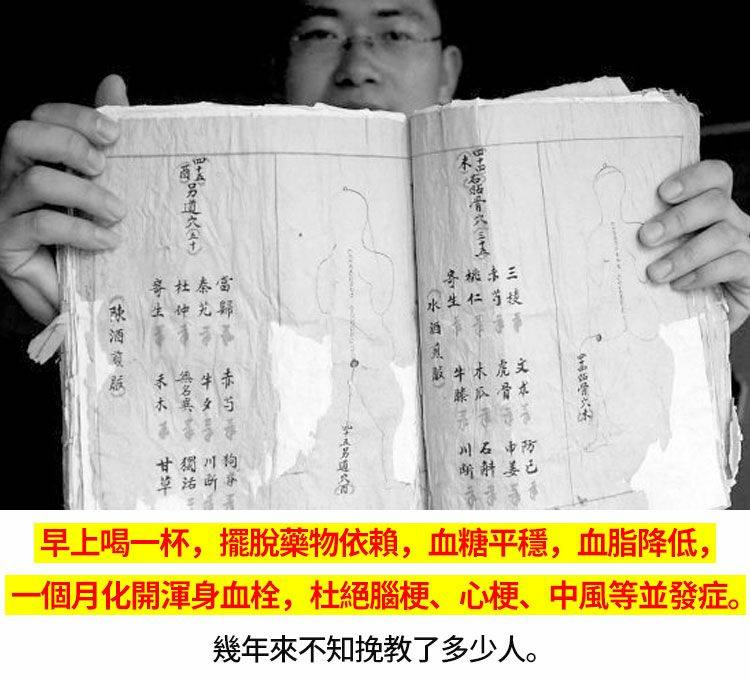 三棱 文朮 防己
赤芍 虎骨 申姜
桃仁 木瓜 石斛
寄生 牛膝 川断
(水酒煎服)
四十五
(酉)另道穴(五十)
四十五另道穴(酉)
當歸 赤芍
秦艽 牛夕 川断
杜仲 無名異 獨活
寄生 禾木 甘草
(陳酒煎服)
早上喝一杯，擺脫藥物依賴，血糖平穩，血脂降低，
一個月化開渾身血栓，杜絕腦梗、心梗、中風等並發症。
幾年來不知挽教了多少人。